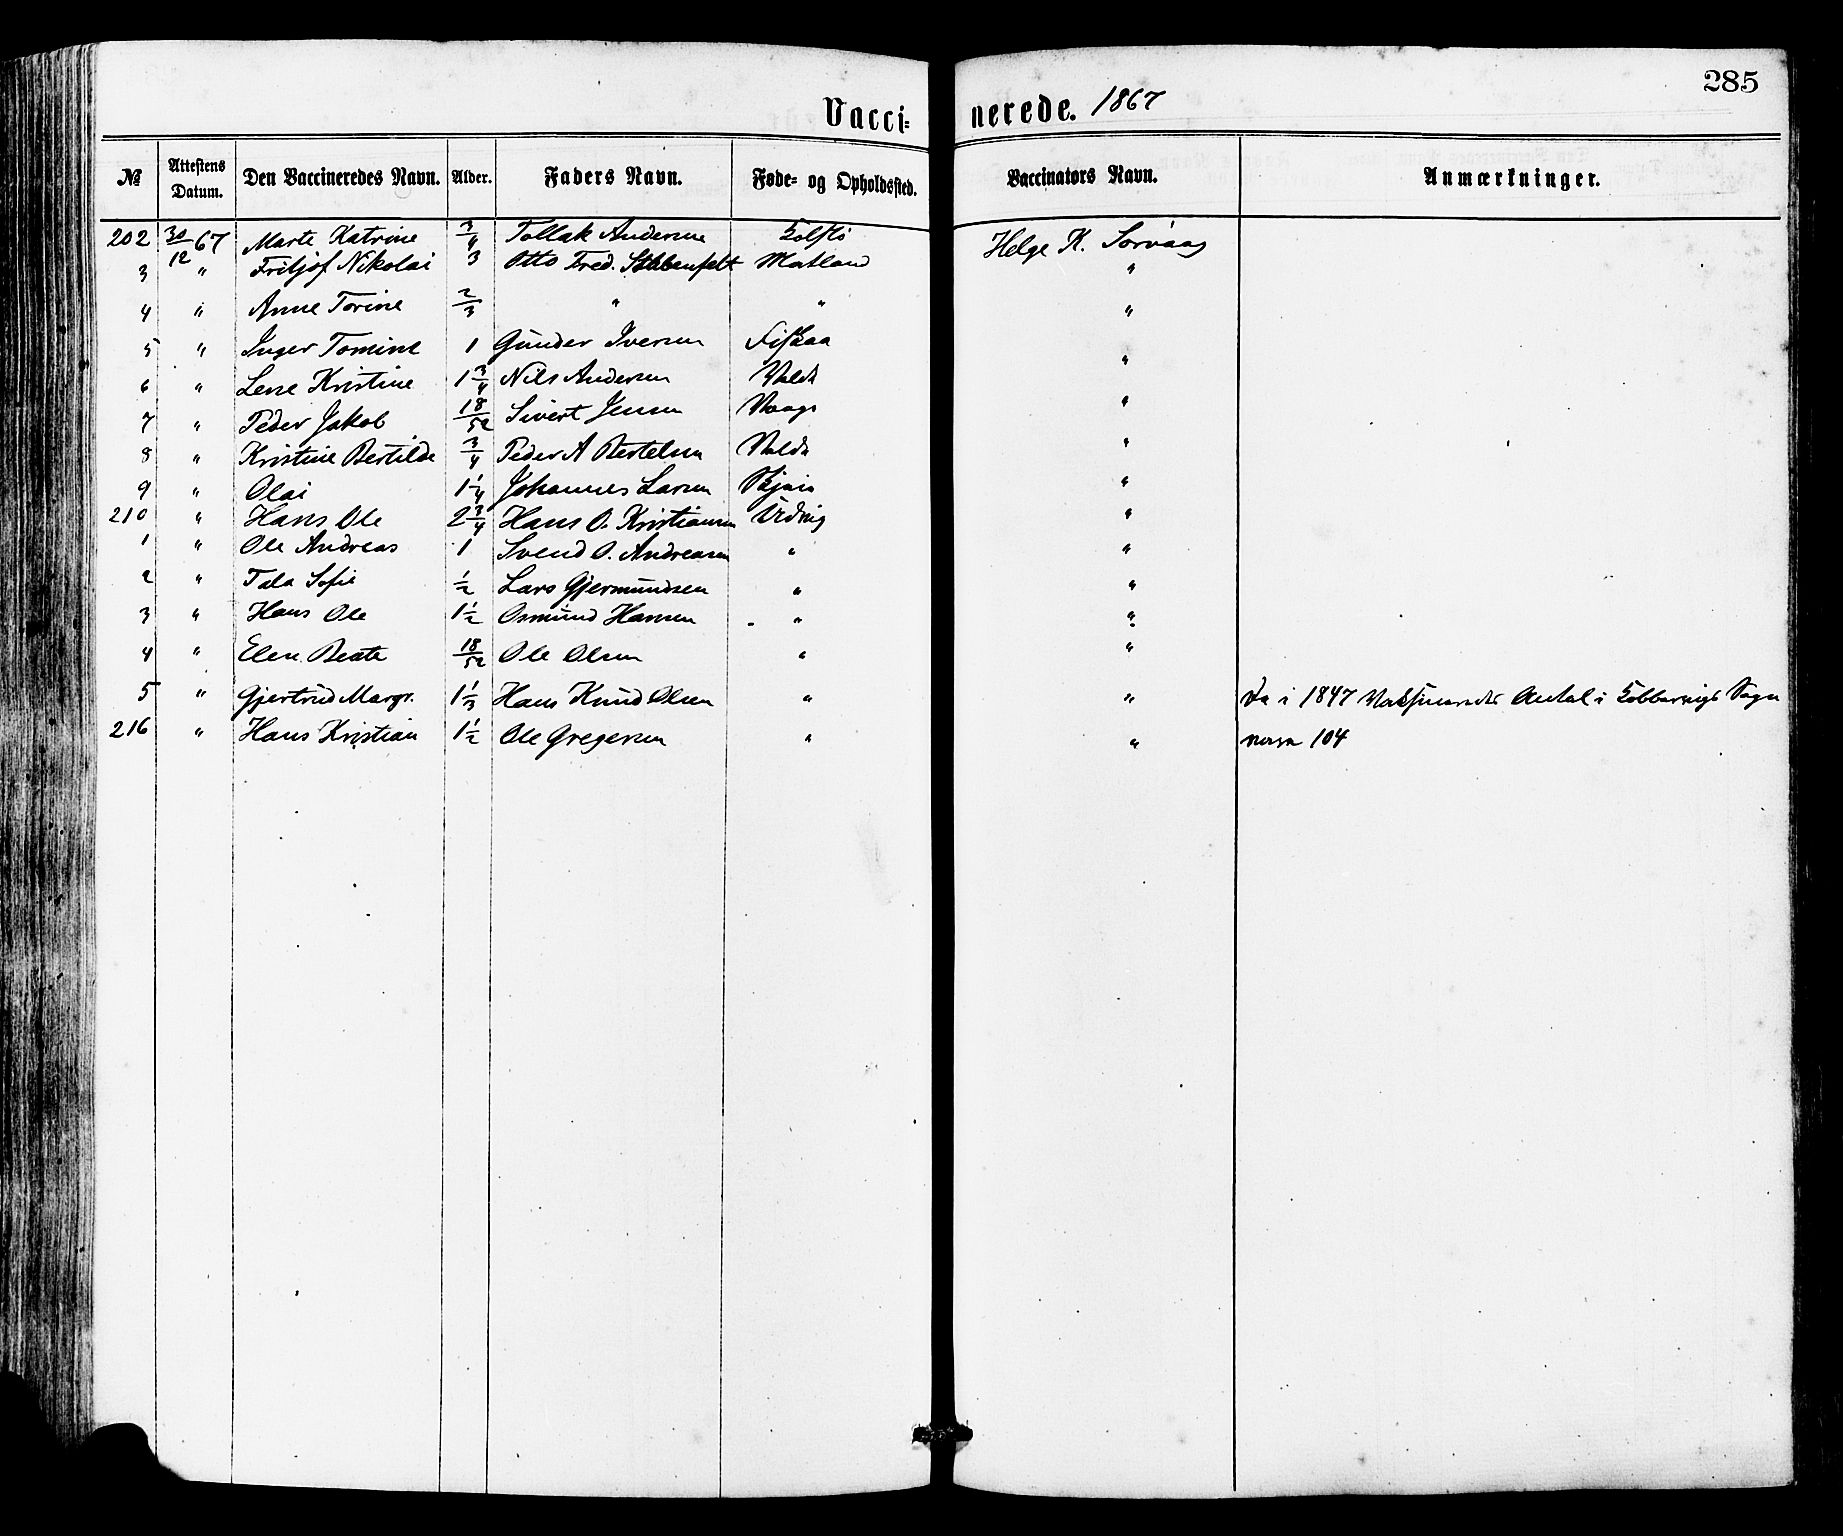 285
Vacci= nerede. 1867
№ Attestens Datum. Den Vaccineredes Navn. Alder. Faders Navn. Føde= og Opholdssted. Vaccinators Navn. Anmærkninger.
202 30/12 67 Marte Katrine 3/4 Tollak Andersen Helge K. Sørvaag
3 " Fritjof Nikolai 3 Otto Fred. Matland "
4 " Anne Torine 2/3 " " "
5 " Inger Tomine 1 Gunder Iversen Fiskaa "
6 " Lene Kristine 1 3/4 Nils Andersen "
7 " Peder Jakob 18/52 Sivert Jensen Vaage "
8 " Kristine Bertilde 3/4 Peder A Bertelsen "
9 " Olai 1 1/4 Johannes Larsen "
210 " Hans Ole 2 3/4 Hans O. Kristiansen Udvig "
1 " Ole Andreas 1 Svend O. Andreasen " "
2 " Tala Sofie 1/2 Lars Gjermundsen " "
3 " Hans Ole 1 1/2 Osmund Hansen " "
4 " Elen Beate 18/52 Ole Olsen " "
5 " Gjertrud Margr. 1 1/3 Hans Knud Olsen " " i 1847 Antal i Sogn
216 " Hans Kristian 1 1/2 Ole Gregersen " " 104